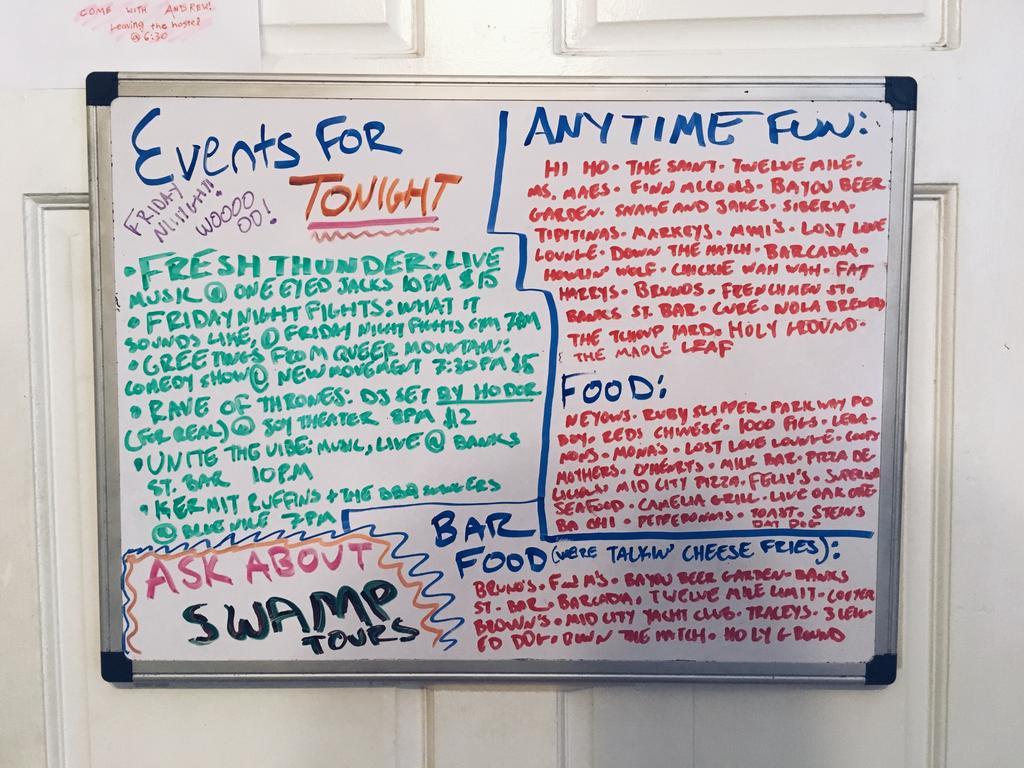 COME WITH ANDREW!
Leaving the hostel
@ 6:30
Events FOR
TONIGHT
FRIDAY
NIIIIGHT!!
WOOOO
OO!
• FRESH THUNDER: LIVE
MUSIC @ ONE EYED JACKS 10PM $15
• FRIDAY NIGHT FIGHTS: WHAT IT
SOUNDS LIKE, @ FRIDAY NIGHT FIGHTS GYM 7PM
• GREETINGS FROM QUEER MOUNTAIN:
COMEDY SHOW @ NEW MOVEMENT 7:30PM $5
• RAVE OF THRONES: DJ SET BY HODOR
(FOR REAL) @ JOY THEATER 8PM $12
• UNITE THE VIBE: MUSIC, LIVE @ BANKS
ST. BAR 10PM
• KERMIT RUFFINS + THE BBQ SWINGERS
@ BLUE NILE 7PM
ASK ABOUT
SWAMP
TOURS
ANYTIME FUN:
HI HO • THE SAINT • TWELVE MILE •
MS. MAES • FINN MCCOOLS • BAYOU BEER
GARDEN • SNAKE AND JAKES • SIBERIA •
TIPITINAS • MARKEYS • MIMI'S • LOST LOVE
LOUNGE • DOWN THE HATCH • BARCADIA •
HOWLIN' WOLF • CHICKIE WAH WAH • FAT
HARRYS • BRUNOS • FRENCHMEN ST. •
BANKS ST. BAR • CURE • NOLA BREWING
THE TCHOUP YARD • HOLY GROUND •
THE MAPLE LEAF
FOOD:
NEYOWS • RUBY SLIPPER • PARKWAY PO
BOY • REDS CHINESE • 1000 FIGS • LEBA-
NONS • MONA'S • LOST LOVE LOUNGE • COOPS
MOTHERS • O'HENRYS • MILK BAR • PIZZA DE-
LICIOUS • MID CITY PIZZA • FELIX'S • SUPERIOR
SEAFOOD • CAMELIA GRILL • LIVE OAK CAFE
BA CHI • PEPPERONIS • TOAST • STEINS
DAT DOG
BAR
FOOD (WE'RE TALKIN' CHEESE FRIES):
BRUNO'S • F & M'S • BAYOU BEER GARDEN • BANKS
ST. BAR • BARCADIA • TWELVE MILE LIMIT • COOTER
BROWN'S • MID CITY YACHT CLUB • TRACEYS • 3 LEGG-
ED DOG • DOWN THE HATCH • HOLY GROUND